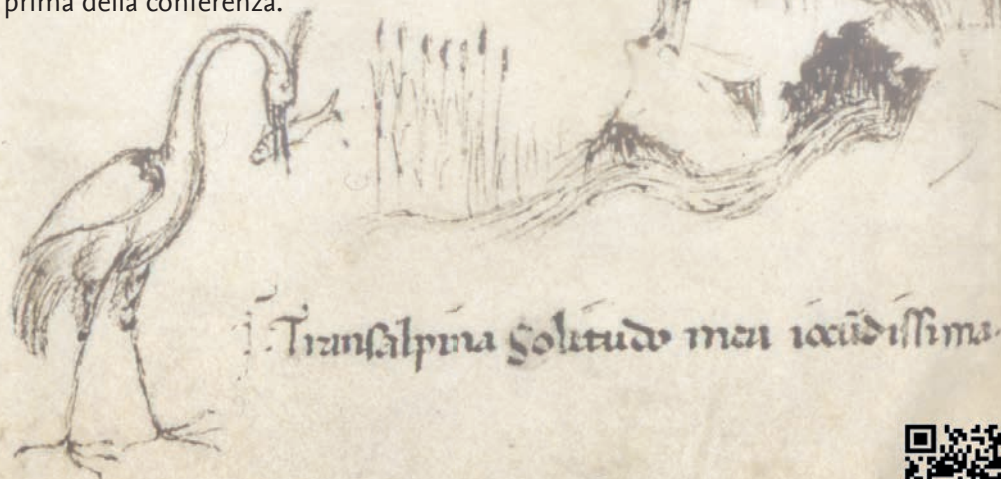 prima della conferenza.
Transalpina solitudo mea iocūdissima